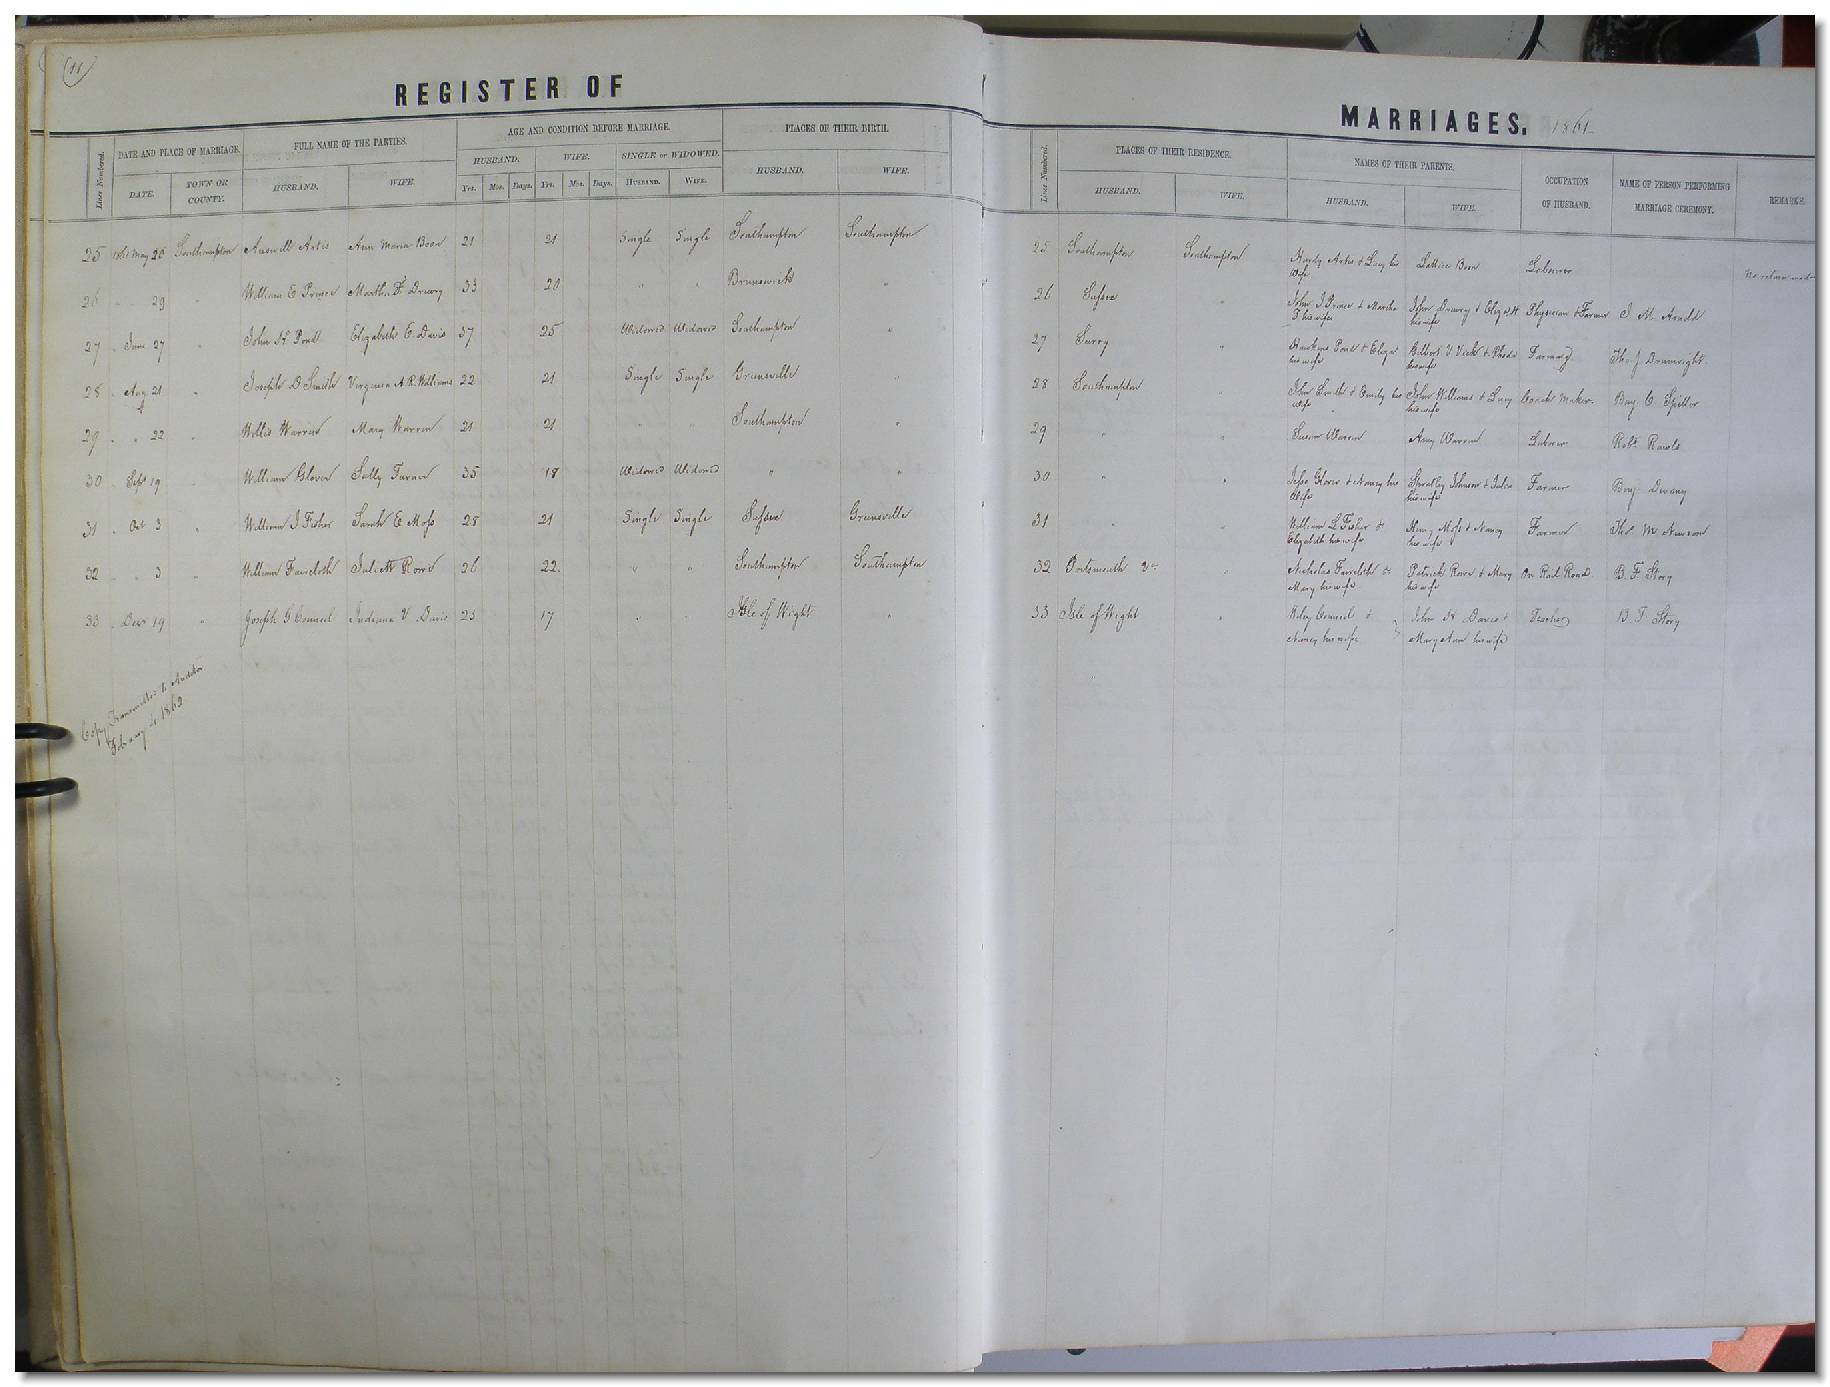 (11)
REGISTER OF
Lines Numbered.
DATE AND PLACE OF MARRIAGE.
FULL NAME OF THE PARTIES.
AGE AND CONDITION BEFORE MARRIAGE.
PLACES OF THEIR BIRTH.
HUSBAND. WIFE. SINGLE or WIDOWED.
DATE. TOWN OR COUNTY. HUSBAND. WIFE. Yrs. Mos. Days. Yrs. Mos. Days. HUSBAND. WIFE. HUSBAND. WIFE.
25 1861 May 26 Southampton Artis Ann Maria Boon 21 21 Single Single Southampton Southampton
26 " " 29 " William E Prince Martha F Drewry 33 20 " " Brunswick "
27 " June 27 " John H Pond Elizabeth E. Davis 37 25 Widowed Widowed Southampton "
28 " Aug 21 " Joseph D Smith Virginia A R Williams 22 21 Single Single Greensville "
29 " " 22 " Willis Warren Mary Warren 21 21 " " Southampton "
30 " Sept 19 " William Glover Sally Turner 35 18 Widowed Widowed " "
31 " Oct 3 " William J Fisher Sarah E Moss 28 21 Single Single Sussex Greensville
32 " " 3 " William Faircloth Rowe 26 22 " " Southampton Southampton
33 " Decr 19 " Joseph G Council Indiana V Davis 25 17 " " Isle of Wight "
Copy Transmitted to Auditor
February 1862
MARRIAGES. 1861
Lines Numbered.
PLACES OF THEIR RESIDENCE. NAMES OF THEIR PARENTS. OCCUPATION OF HUSBAND. NAME OF PERSON PERFORMING MARRIAGE CEREMONY. REMARKS.
HUSBAND. WIFE. HUSBAND. WIFE.
25 Southampton Southampton Hardy Artis & Lucy his Wife Boon Laborer No return
26 Sussex " John & Martha his wife John Drewry & his wife Physician & Farmer J M Arnold
27 Surry " Pond & Eliza his wife Gilbert V Vick & Rhoda his wife Farming
28 Southampton " John Smith & Emily his wife John Williams & Lucy his wife Coach Maker Benj C Spiller
29 " " Susan Warren Amy Warren Laborer Robt Rawls
30 " " Jesse Glover & Nancy his Wife Spratley Johnson & his wife Farmer Benj Devany
31 " " William L Fisher & Elizabeth his wife Henry Moss & Nancy his wife Farmer Thos M Newsom
32 Portsmouth Va " Nicholas Faircloth & Mary his wife Patrick Rowe & Mary his wife On Rail Road B. F. Story
33 Isle of Wight " Council & Nancy his wife John H Davis & Mary Ann his wife Teacher B. F. Story